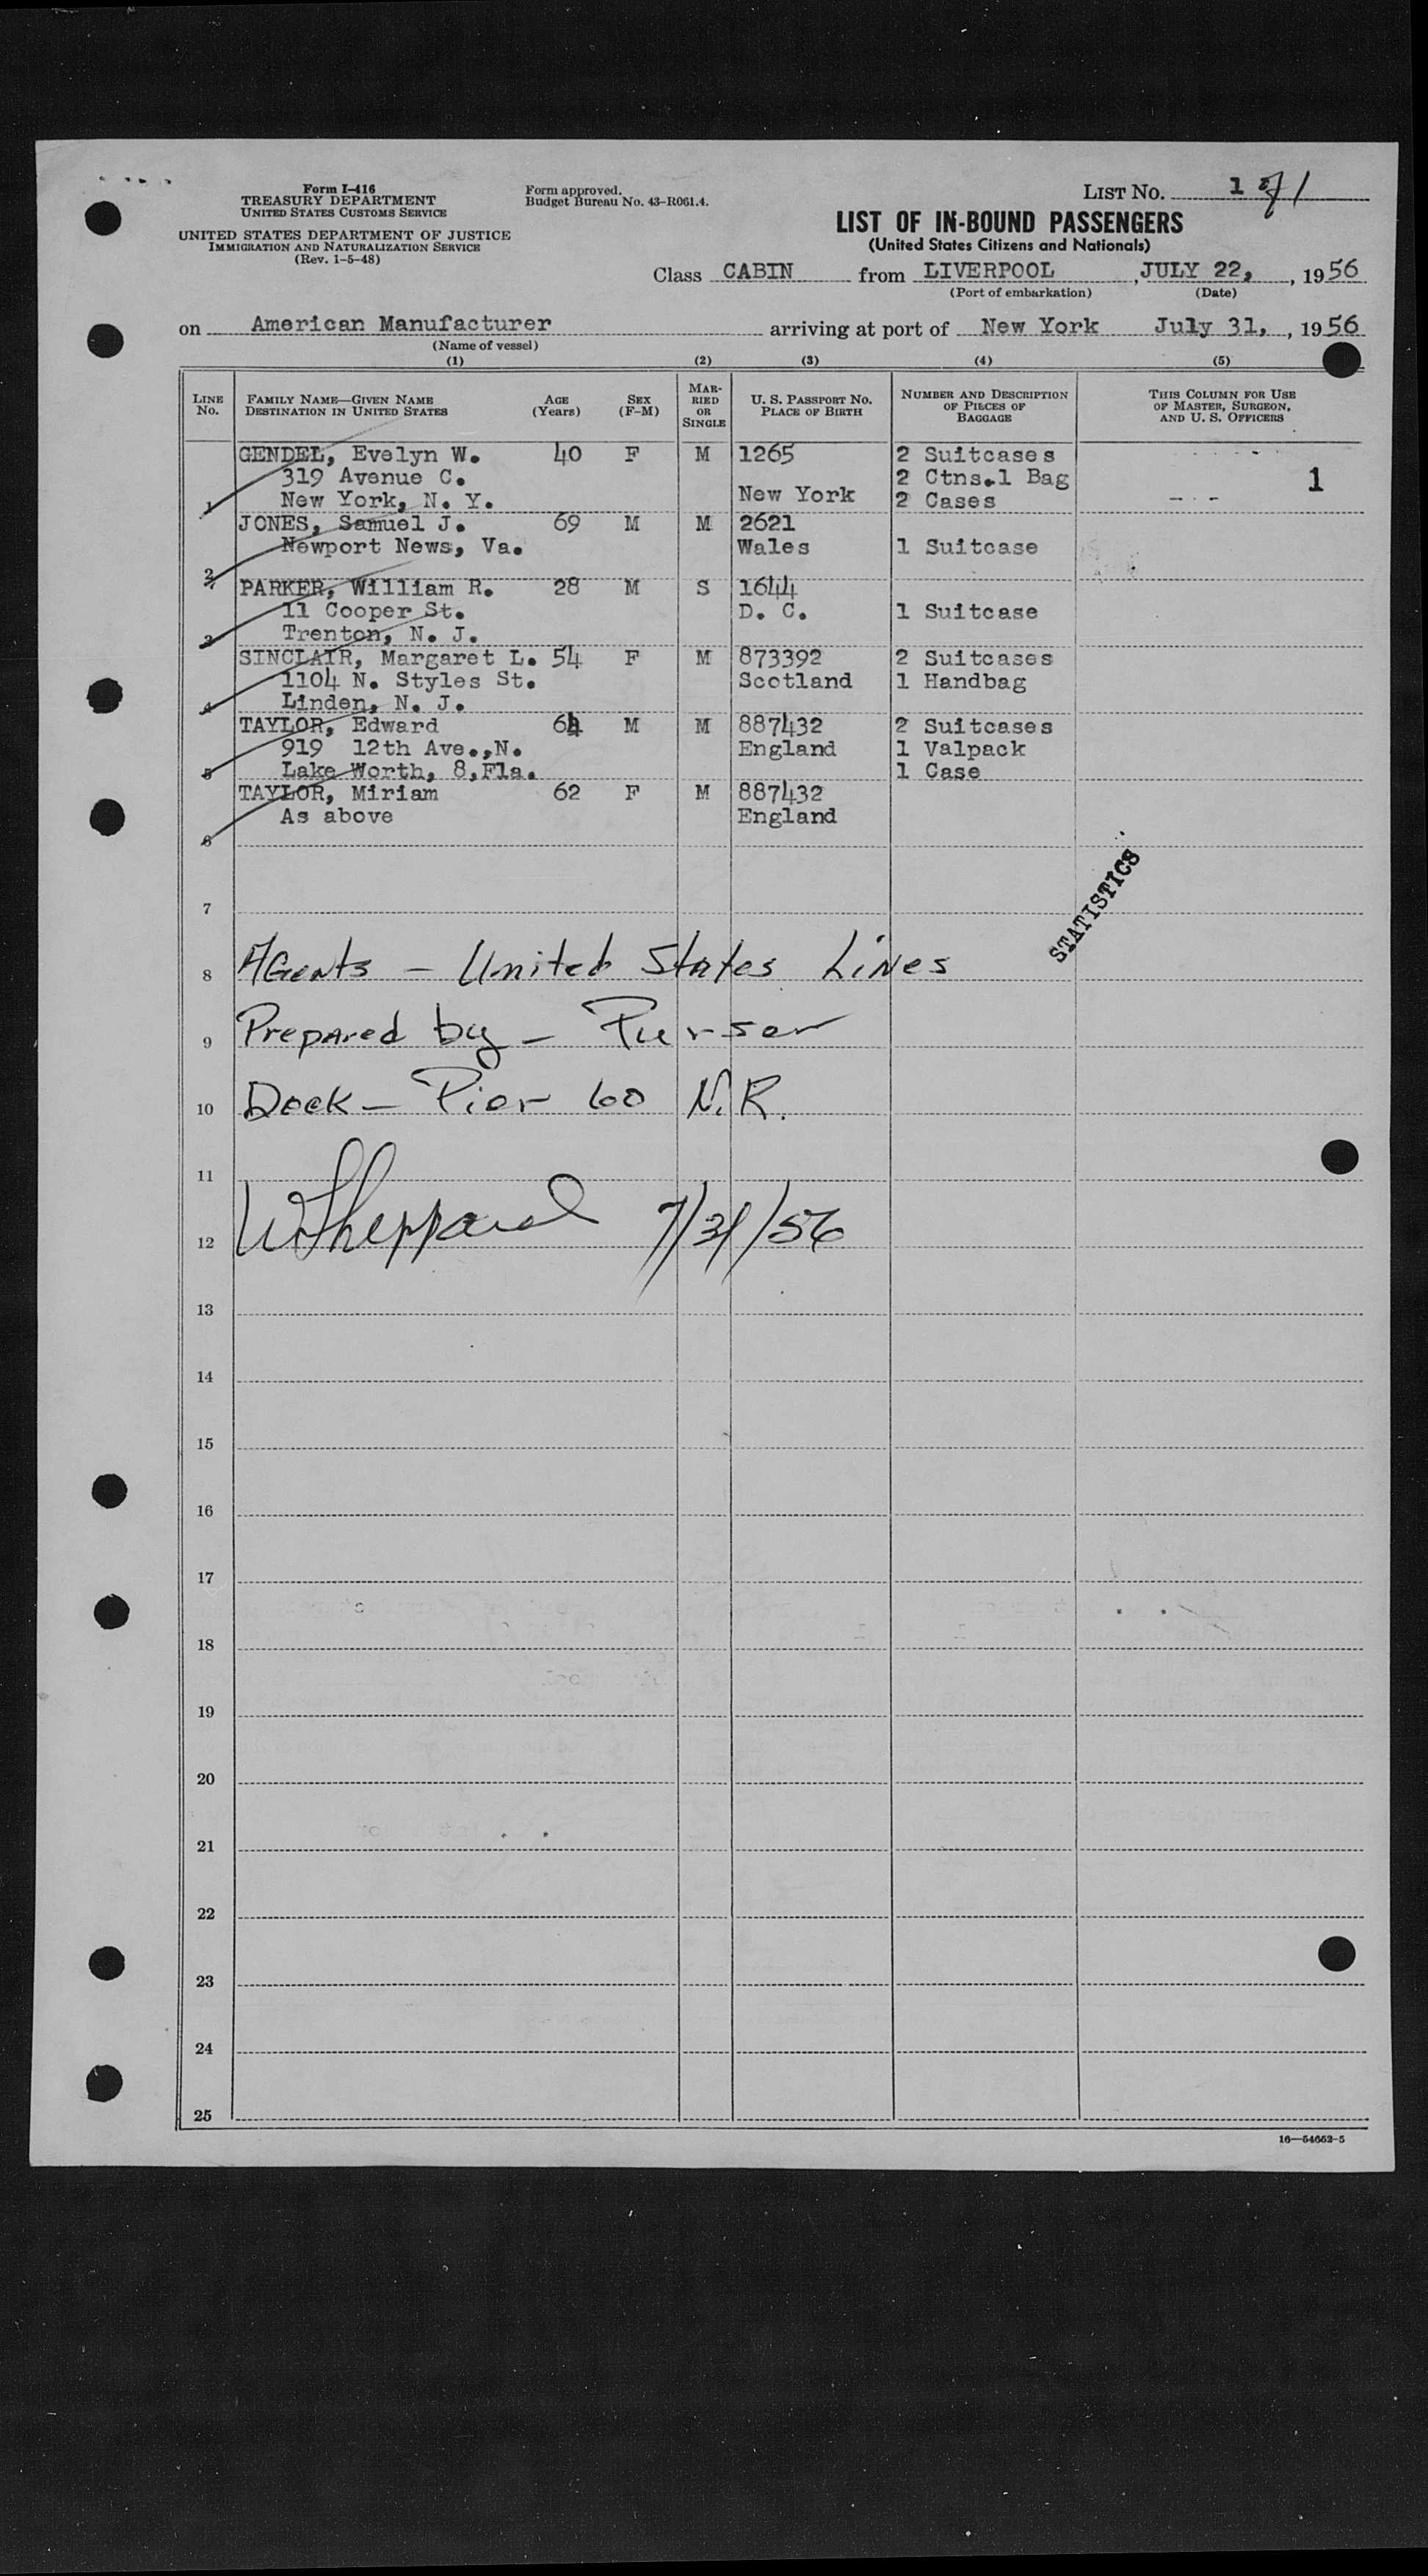 Form I-416
TREASURY DEPARTMENT
UNITED STATES CUSTOMS SERVICE
UNITED STATES DEPARTMENT OF JUSTICE
IMMIGRATION AND NATURALIZATION SERVICE
(Rev. 1-5-48)
Form approved.
Budget Bureau No. 43-R061.4.
LIST No. 1
LIST OF IN-BOUND PASSENGERS
(United States Citizens and Nationals)
Class CABIN from LIVERPOOL, JULY 22, , 1956
(Port of embarkation) (Date)
on American Manufacturer arriving at port of New York July 31, , 1956
(Name of vessel)
(1) (2) (3) (4) (5)
LINE No. FAMILY NAME—GIVEN NAME DESTINATION IN UNITED STATES AGE (Years) SEX (F-M) MARRIED OR SINGLE U. S. PASSPORT NO. PLACE OF BIRTH NUMBER AND DESCRIPTION OF PIECES OF BAGGAGE THIS COLUMN FOR USE OF MASTER, SURGEON, AND U. S. OFFICERS
GENDEL, Evelyn W. 40 F M 1265 2 Suitcases
319 Avenue C. 2 Ctns.1 Bag 1
1 New York, N. Y. New York 2 Cases
JONES, Samuel J. 69 M M 2621
Newport News, Va. Wales 1 Suitcase
2
PARKER, William R. 28 M S 1644
11 Cooper St. D. C. 1 Suitcase
3 Trenton, N. J.
SINCLAIR, Margaret L. 54 F M 873392 2 Suitcases
1104 N. Styles St. Scotland 1 Handbag
4 Linden, N. J.
TAYLOR, Edward 64 M M 887432 2 Suitcases
919 12th Ave.,N. England 1 Valpack
5 Lake Worth, 8,Fla. 1 Case
TAYLOR, Miriam 62 F M 887432
As above England
6
STATISTICS
7
8 Agents - United States Lines
9 Prepared by - Purser
10 Dock - Pier 60 N.R.
11
12 W Sheppard 7/31/56
13
14
15
16
17
18
19
20
21
22
23
24
25
16—54652-5